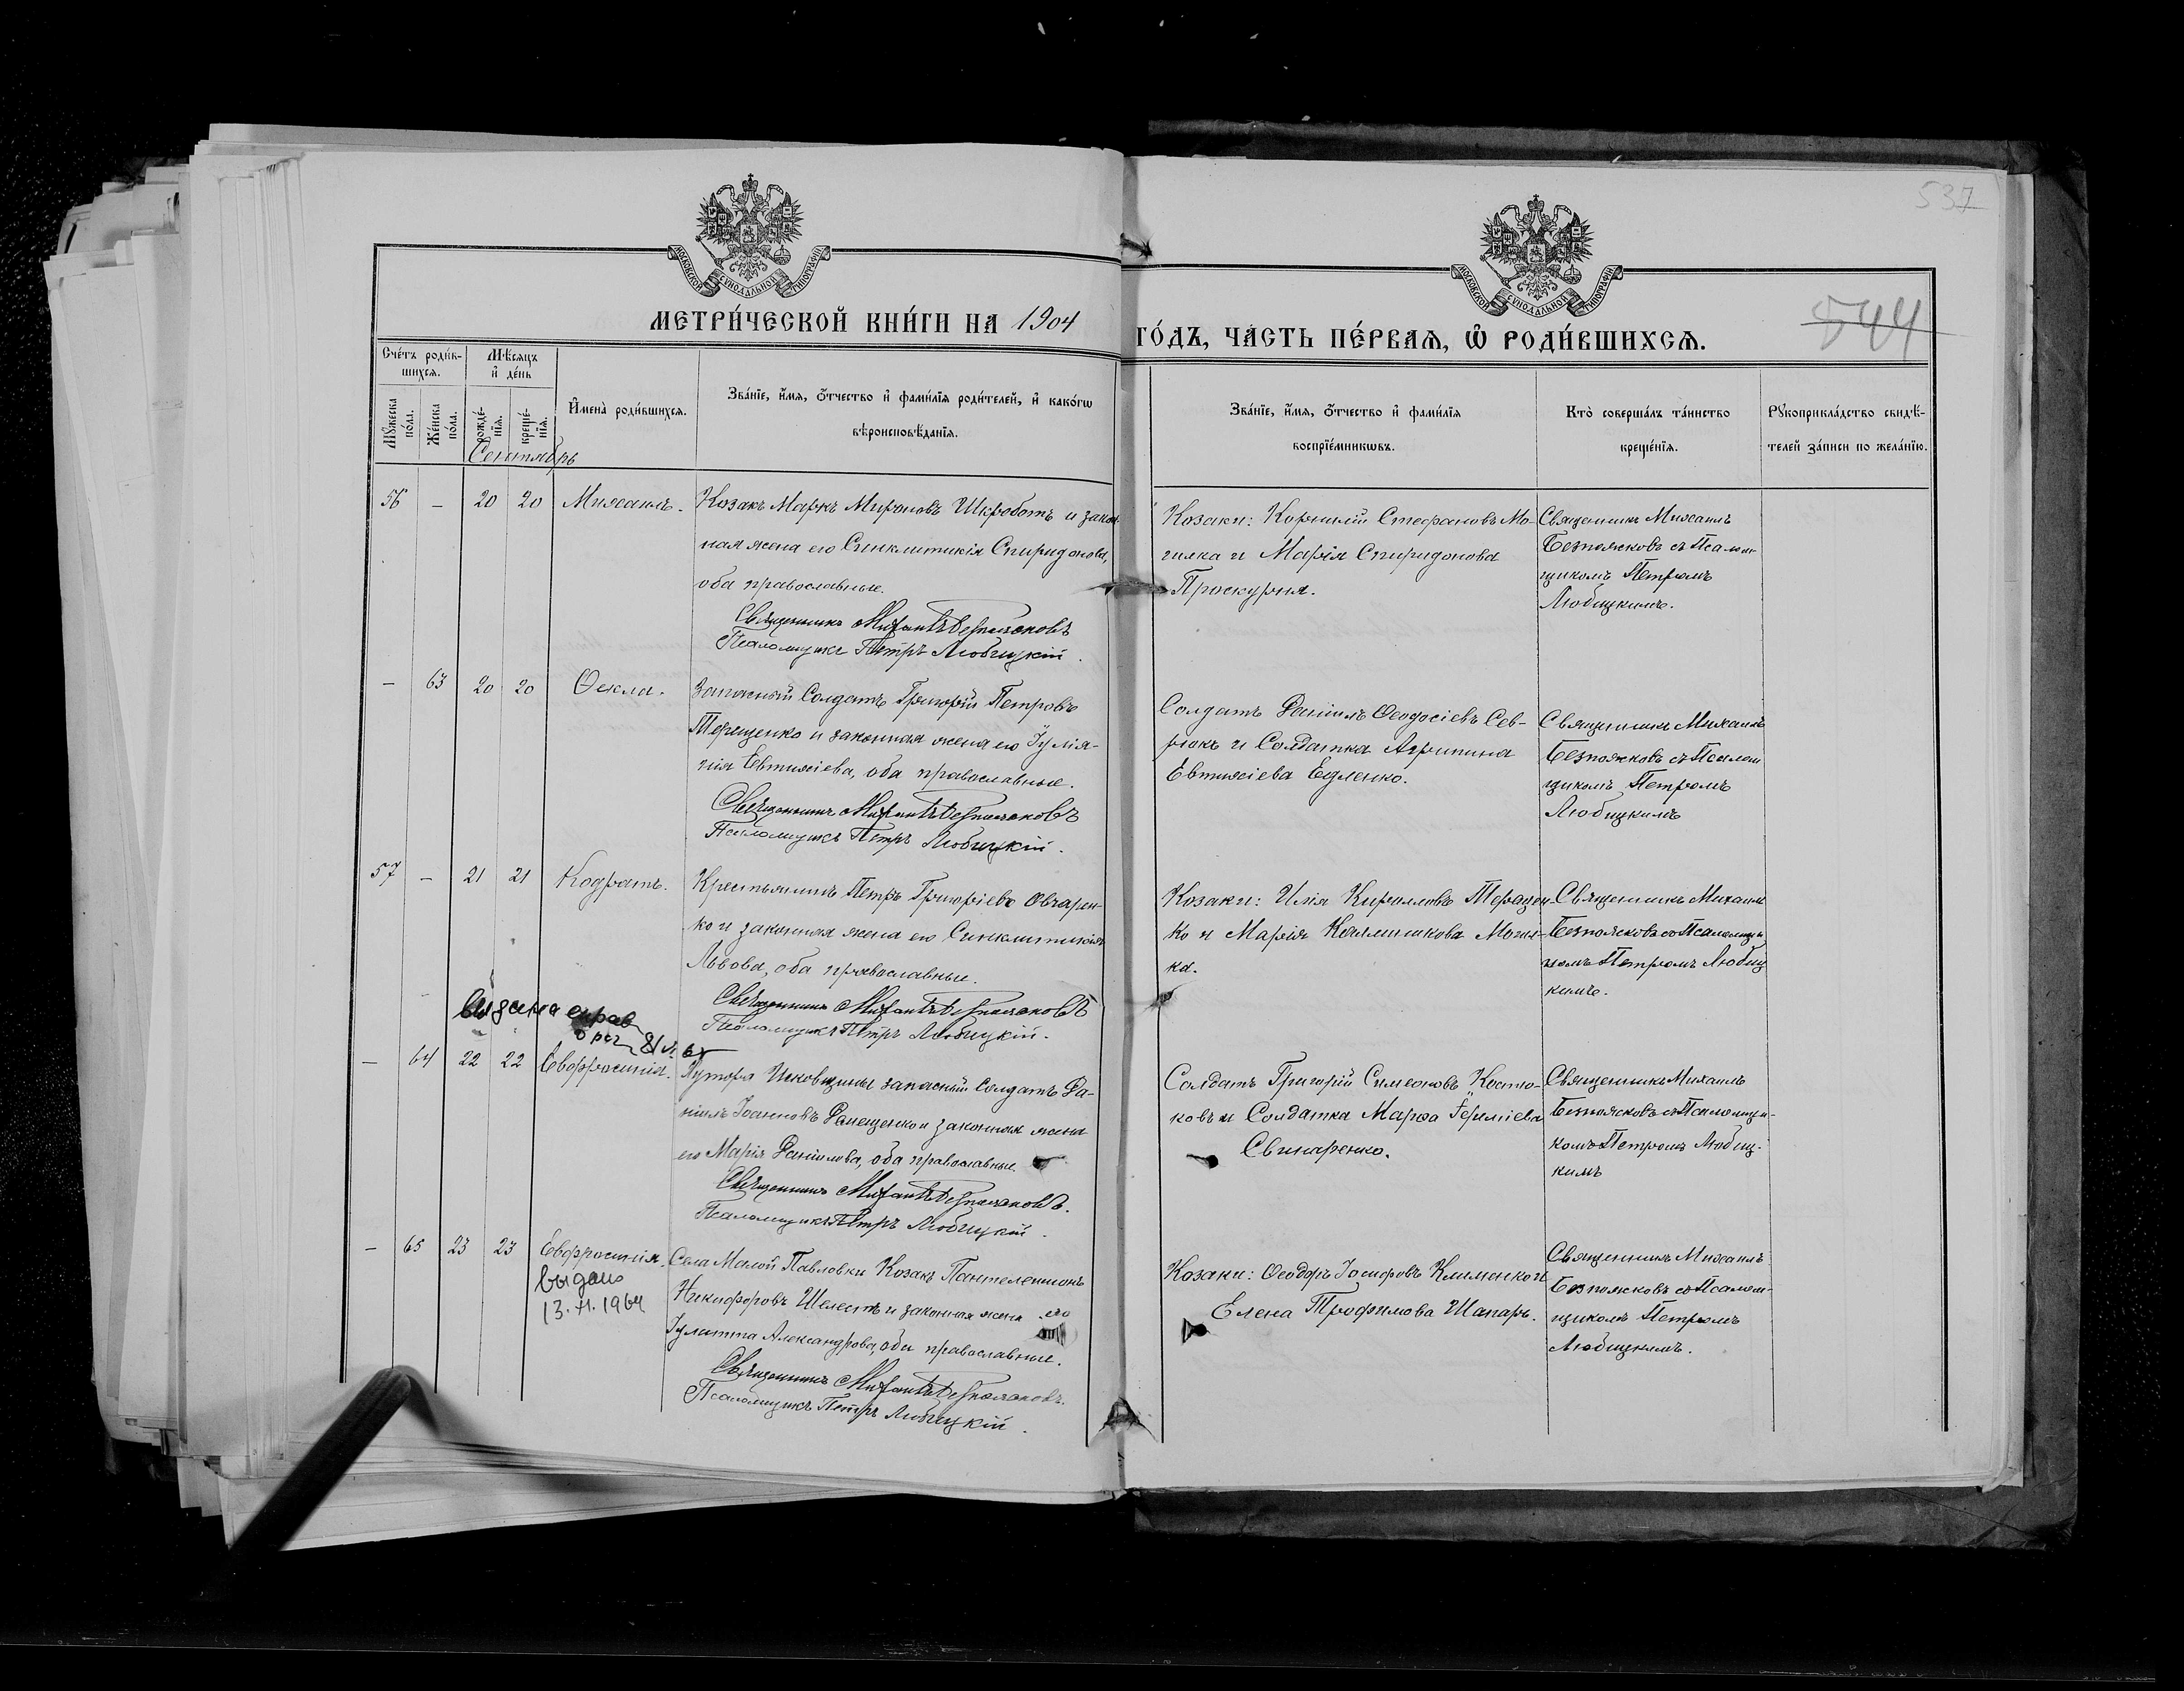 537
МОСКОВСКОЙ СѴНОДАЛЬНОЙ ТИПОГРАФІИ
МОСКОВСКОЙ СѴНОДАЛЬНОЙ ТИПОГРАФІИ
МЕТРИ́ЧЕСКОЙ КНИ́ГИ НА 1904
ГО́ДЪ, ЧА́СТЬ ПЕ́РВАѦ, Ѡ҆ РОДИ́ВШИХСѦ.
544
Сче́тъ роди́в-
шихсѧ.
Мꙋ́жеска по́ла.
Же́нска по́ла.
Мѣ́сѧцъ
и҆ де́нь
рожде́-
нїѧ.
креще́-
нїѧ.
И҆мена̀ роди́вшихсѧ.
Зва́нїе, и҆́мѧ, ѻ҆́тчество и҆ фами́лїѧ роди́телей, и҆ како́гѡ
вѣроисповѣ́данїѧ.
Зва́нїе, и҆́мѧ, ѻ҆́тчество и҆ фами́лїѧ
воспрїе́мникѡвъ.
Кто̀ соверша́лъ та́инство
креще́нїѧ.
Рꙋкоприкла́дство свидѣ́-
телей за́писи по жела́нїю.
Сентябрь
56 – 20 20 Михаилъ.
Козакъ Маркъ Мироновъ Шкроботъ и закон-
ная жена его Синклитикія Спиридонова,
оба православные.
Священникъ Михаилъ Безпоясковъ
Псаломщикъ Петръ Любицкій.
Козаки: Корнилій Стефановъ Мо-
гилка и Марія Спиридонова
Проскурня.
Священникъ Михаилъ
Безпоясковъ съ Псалом-
щикомъ Петромъ
Любицкимъ.
– 63 20 20 Ѳекла.
Запасный Солдатъ Григорій Петровъ
Терещенко и законная жена его Іулія-
нія Евтихіева, оба православные.
Священникъ Михаилъ Безпоясковъ
Псаломщикъ Петръ Любицкій.
Солдатъ Даніилъ Ѳеодосіевъ Сев-
рюкъ и Солдатка Агрипина
Евтихіева Ещленко.
Священникъ Михаилъ
Безпоясковъ съ Псалом
щикомъ Петромъ
Любицкимъ
57 – 21 21 Кодратъ.
Крестьянинъ Петръ Григоріевъ Овчарен-
ко и законная жена его Синклитикія
Львова, оба православные.
Священникъ Михаилъ Безпоясковъ
Псаломщикъ Петръ Любицкій.
Козаки: Илія Кирилловъ Терещен-
ко и Марія Моги-
ка.
Священникъ Михаилъ
Безпоясковъ съ Псаломщи
комъ Петромъ Любиц
кимъ.
видана справ
– 64 22 22 Евфросинія.
Хутора Исковщины запасный Солдатъ Да-
ніилъ Іоанновъ Демещенко и законная жена
его Марія Даніилова, оба православные.
Священникъ Михаилъ Безпоясковъ.
Псаломщикъ Петръ Любицкій.
Солдатъ Григорій Симеоновъ Костю-
ковъ и Солдатка Марѳа Іереміева
Свинаренко.
Священникъ Михаилъ
Безпоясковъ съ Псаломщи-
комъ Петромъ Любиц-
кимъ
– 65 23 23 Евфросинія.
выдано
13.XI.1964
Села Малой Павловки Козакъ Пантелеимонъ
Никифоровъ Шелестъ и законная жена его
Іулитта Александрова, оба православные.
Священникъ Михаилъ Безпоясковъ.
Псаломщикъ Петръ Любицкій.
Козаки: Ѳеодоръ Іосифовъ Клименко и
Елена Трофимова Шапаръ.
Священникъ Михаилъ
Безпоясковъ съ Псалом-
щикомъ Петромъ
Любицкимъ.